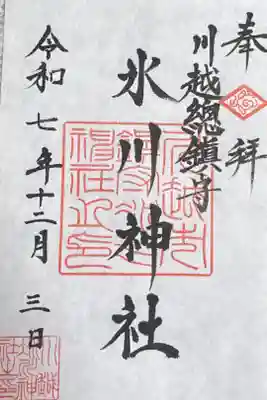 奉拝
川越總鎮守
氷川神社
令和七年十二月三日